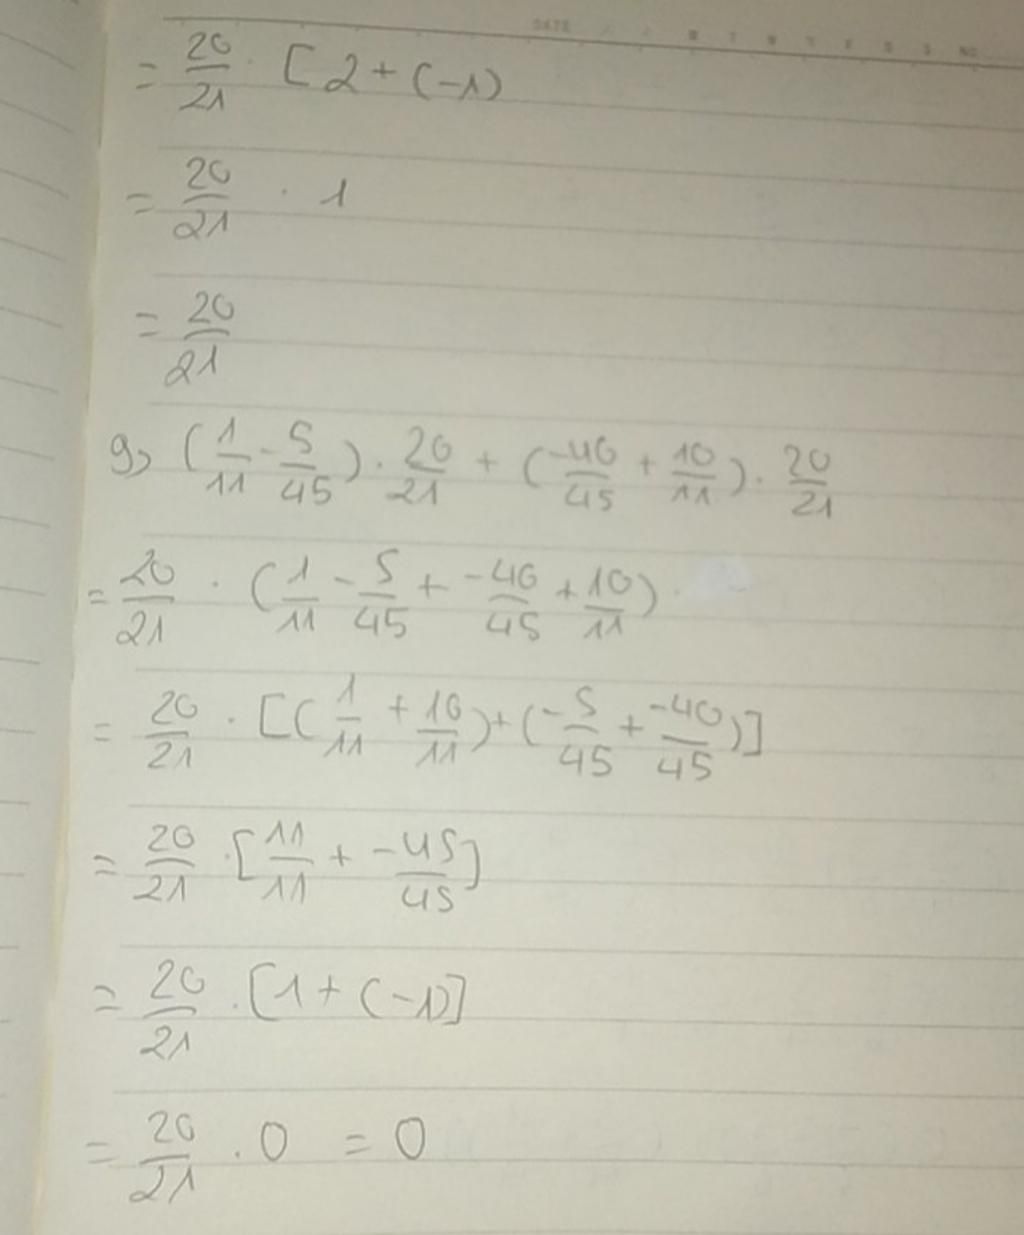 DATE / / M T W T F S S NO.
= 20/21 · [2 + (-1)
= 20/21 · 1
= 20/21
g) (1/11 - 5/45) · 20/21 + (-40/45 + 10/11) · 20/21
= 20/21 · (1/11 - 5/45 + -40/45 + 10/11) ·
= 20/21 · [(1/11 + 10/11) + (-5/45 + -40/45)]
= 20/21 · [11/11 + -45/45]
= 20/21 · [1 + (-1)]
= 20/21 · 0 = 0